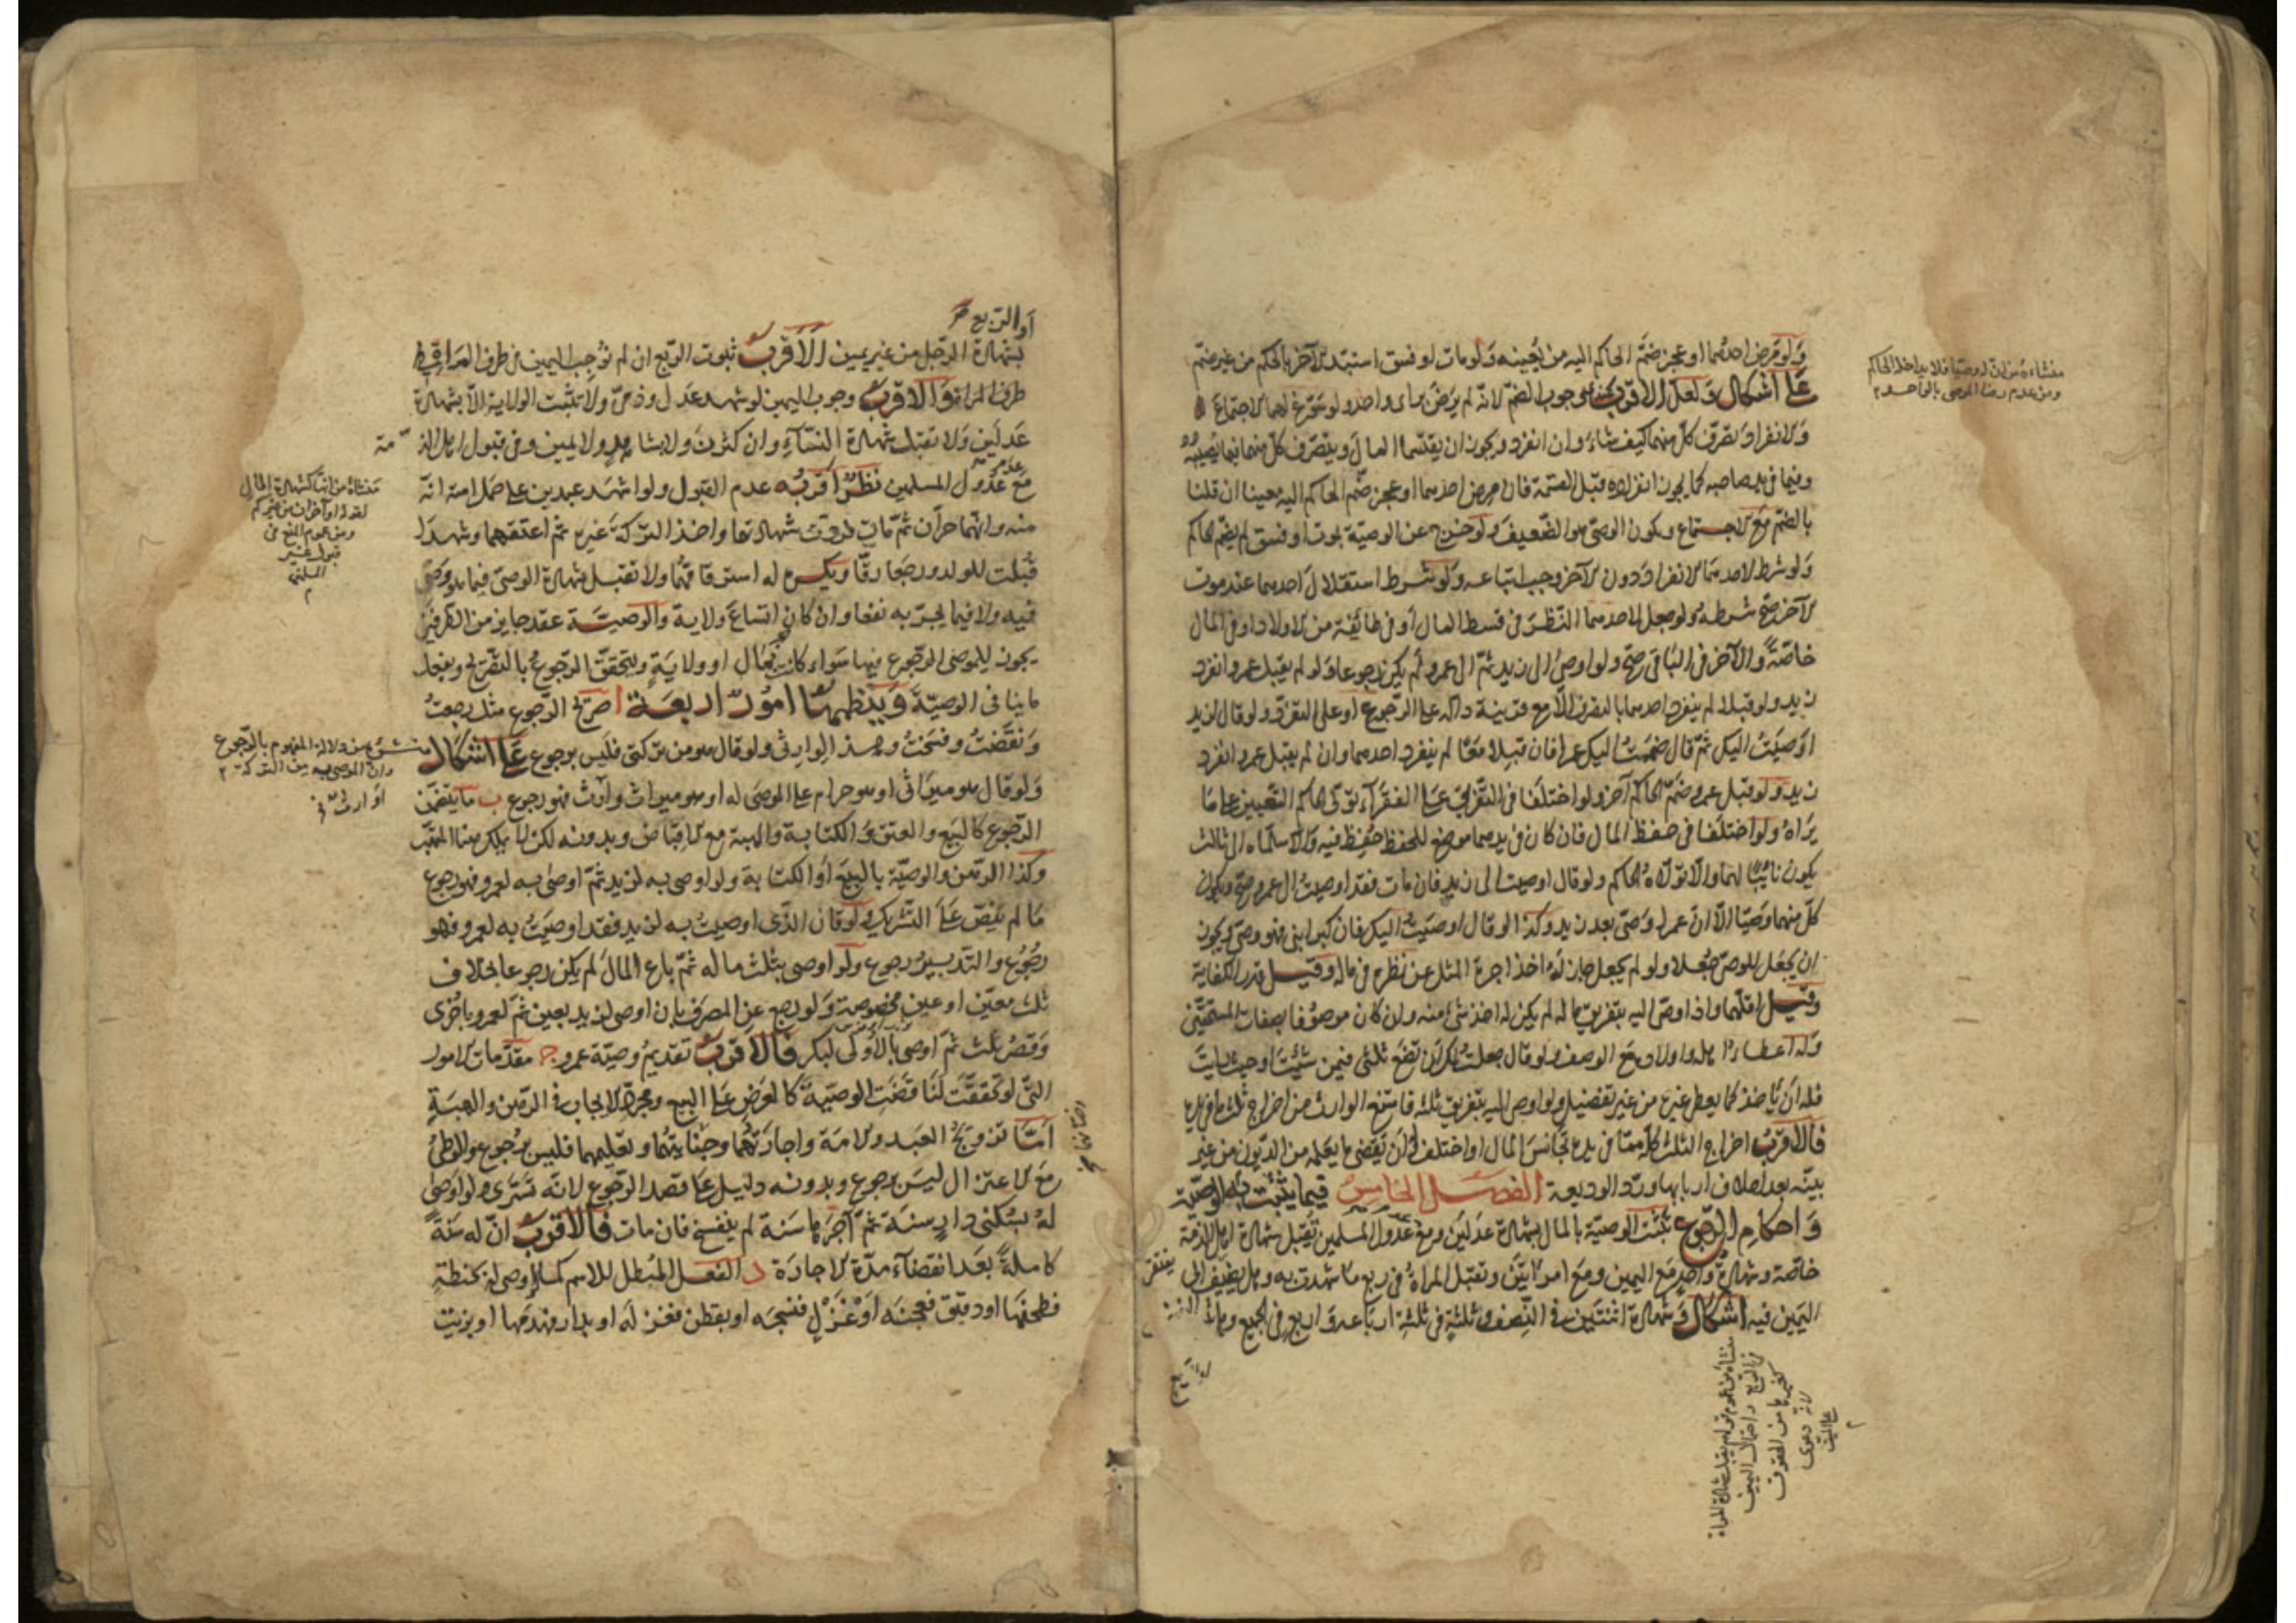 ولو مرض احدهما او عجز ضم الحاكم اليه من يعينه ولو مات او فسق استبد الآخر بالحكم من غير ضم
على اشكال ولعل الاقرب عندي وجوب الضم لانه لم يرض براى واحد ولو سوغ لهما الاجتماع
والانفراد تصرف كل منهما كيف شاء وان انفرد ويجوز ان يقتسما المال ويتصرف كل منهما فيما يصيبه
وفيما في يد صاحبه كما يجوز انفراده قبل القسمة فان مرض احدهما او عجز ضم الحاكم اليه معينا ان قلنا
بالضم مع الاجتماع ويكون الوصى هو الضعيف ولو خرج عن الوصية بموت او فسق لم يضم الحاكم
ولو شرط لاحدهما الانفراد دون الآخر وجب اتباعه ولو شرط استقلال احدهما عند موت
الآخر صح شرطه ولو جعل لاحدهما النظر في قسط المال أو في طائفة من الاولاد او في المال
خاصة والآخر في الباقى صح ولو اوصى الى زيد ثم الى عمرو لم يكن رجوعا ولو لم يقبل عمرو انفرد
زيد ولو قبلا لم ينفرد احدهما بالتصرف الا مع قرينة دالة على الرجوع او على التفرد ولو قال لزيد
اوصيت اليك ثم قال ضممت اليك عمرا فان قبلا معا لم ينفرد احدهما وان لم يقبل عمرو انفرد
زيد ولو قبل عمرو ضم الحاكم آخر ولو اختلفا في التفريق على الفقراء تولى الحاكم التعيين على ما
يراه ولو اختلفا في حفظ المال فان كان في يدهما موضع للحفظ حفظ فيه والا سلماه الى ثالث
يكون نائبا لهما والا تولاه الحاكم ولو قال اوصيت الى زيد فان مات فقد اوصيت الى عمرو صح ويكون
كل منهما وصيا الا ان عمرا وصى بعد زيد وكذا لو قال اوصيت اليك فان كبر ابنى فهو وصى ويجوز
ان يجعل للوصى جعلا ولو لم يجعل جاز له اخذ اجرة المثل عن نظره في ماله وقيل قدر الكفاية
وقيل اقلهما واذا اوصى اليه بتفريق ماله لم يكن له اخذ شئ منه وان كان موصوفا بصفات المستحقين
وله اعطاء اهله واولاده مع الوصف ولو قال جعلت لك ان تضع ثلثى فيمن شئت او حيث رايت
فله ان ياخذ كما يعطى غيره من غير تفضيل ولو اوصى اليه بتفريق ثلثه فامتنع الوارث من اخراج ثلث ما في يده
فالاقرب اخراج الثلث كله مما في يده تجانس المال او اختلف وله ان يقضى ما يعلمه من الديون من غير
بينة بعد احلاف اربابها ورد الوديعة الفصل الخامس فيما يثبت به الوصية
واحكام الرجوع تثبت الوصية بالمال بشهادة عدلين ومع عدم عدول المسلمين تقبل شهادة اهل الذمة
خاصة وشهادة واحد مع اليمين ومع امراتين وتقبل المراة في ربع ما شهدت به وهل يفتقر الى
اليمين فيه اشكال وشهادة اثنتين في النصف وثلثة في ثلثة ارباعه واربع في الجميع وهل
منشاءه من انه وصيا فلا مداخلة للحاكم
ومن عدم رضا الموصى بالواحد
أو الربع
بشهادة الرجل من غير يمين الاقرب ثبوت الربع ان لم نوجب اليمين في طرف المراة
طرف المراة والاقرب وجوب اليمين لو شهد عدل وذمى ولا تثبت الولاية الا بشهادة
عدلين ولا تقبل شهادة النساء وان كثرن ولا شاهد ولا يمين وفي قبول اهل الذمة
مع عدم عدول المسلمين نظر اقربه عدم القبول ولو اشهد عبدين على حمل امته انه
منه وانهما حران ثم مات فردت شهادتهما واخذ التركة غيره ثم اعتقهما وشهدا
قبلت للولد ورجعا رقا ويكره له استرقاقهما ولا تقبل شهادة الوصى فيما هو وصى
فيه ولا فيما يجر به نفعا وان كان اتساع ولاية والوصية عقد جايز من الطرفين
يجوز للموصى الرجوع فيها سواء كانت بمال او ولاية ويتحقق الرجوع بالتصريح وبفعل
ما ينافى الوصية وينظمها امور اربعة ا صريح الرجوع مثل رجعت
ونقضت وفسخت وهذا لوارثى ولو قال هو من تركتى فليس برجوع على اشكال
ولو قال هو ميراثى او هو حرام على الموصى له او هو ميراث وارث فهو رجوع ب ما يتضمن
الرجوع كالبيع والعتق والكتابة والهبة مع الاقباض وبدونه
وكذا الرهن والوصية بالبيع او الكتابة ولو اوصى به لزيد ثم اوصى به لعمرو فهو رجوع
ما لم ينص على التشريك ولو قال الذى اوصيت به لزيد فقد اوصيت به لعمرو فهو
رجوع والتدبير رجوع ولو اوصى بثلث ماله ثم باع المال لم يكن رجوعا بخلاف
ثلث معين او عين مخصوصة ولو رجع عن المصرف بان اوصى لزيد بعين ثم لعمرو باخرى
وقصر ثلث ثم اوصى بالاولى لبكر فالاقرب تقديم وصية عمرو ج مقدمات الامور
التى لو تحققت لناقضت الوصية كالعرض على البيع ومجرد الايجاب في الرهن والهبة
اما تزويج العبد والامة واجارتهما وختانهما وتعليمهما فليس برجوع والوطئ
مع الاعتزال ليس برجوع وبدونه دليل على قصد الرجوع لانه تسرى ولو اوصى
له بسكنى دار سنة ثم آجرها سنة لم ينفسخ فان مات فالاقرب ان له سنة
كاملة بعد انقضآء مدة الاجارة د الفعل المبطل للاسم كما لو اوصى له بحنطة
فطحنها او دقيق فعجنه او غزل فنسجه او بقطن فغزله او بدار فهدمها او بزيت
منشاءه من انها كشهادة المال
لقوله او آخران من غيركم
ومن عموم المنع من
قبول غير
المسلم